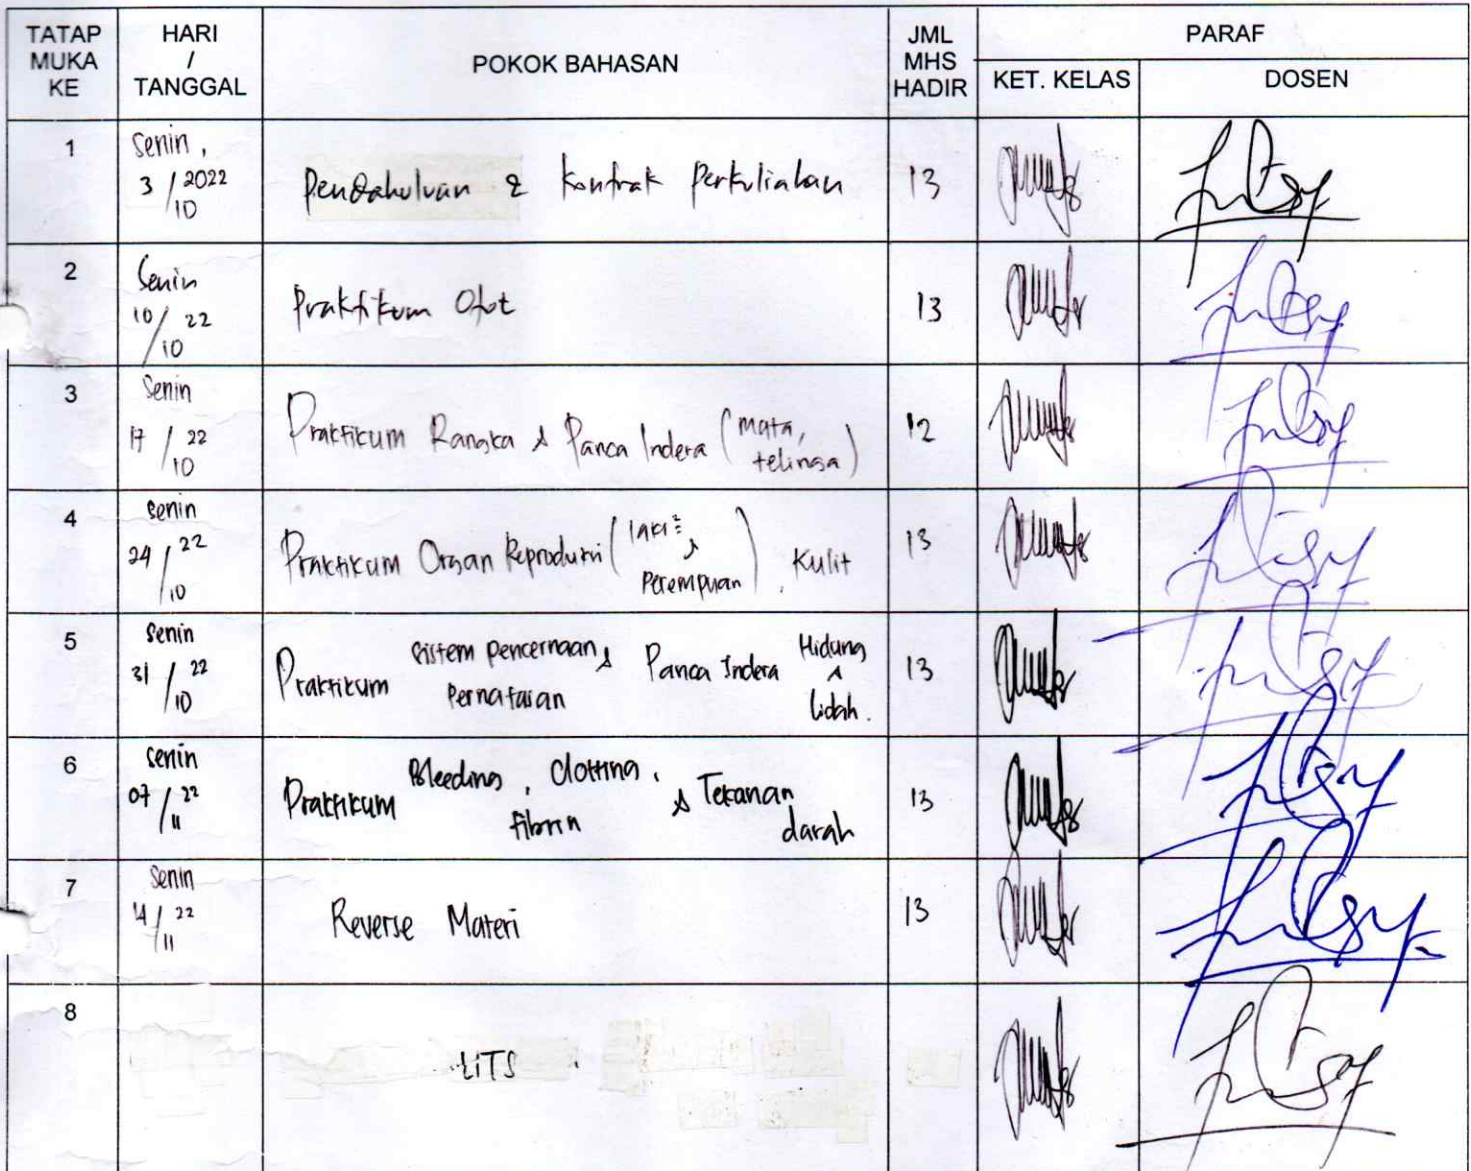 TATAP MUKA KE | HARI / TANGGAL | POKOK BAHASAN | JML MHS HADIR | PARAF
KET. KELAS | DOSEN
1 | Senin, 3/10 2022 | Pendahuluan & Kontrak Perkuliahan | 13
2 | Senin 10/10 22 | Praktikum Otot | 13
3 | Senin 17/10 22 | Praktikum Rangka & Panca Indera (mata, telinga) | 12
4 | Senin 24/10 22 | Praktikum Organ Reproduksi (laki² & Perempuan), Kulit | 13
5 | Senin 31/10 22 | Praktikum sistem pencernaan & Pernafasan Panca Indera Hidung & Lidah. | 13
6 | Senin 07/11 22 | Praktikum Bleeding, Clotting, fibrin & Tekanan darah | 13
7 | Senin 14/11 22 | Reverse Materi | 13
8 | UTS